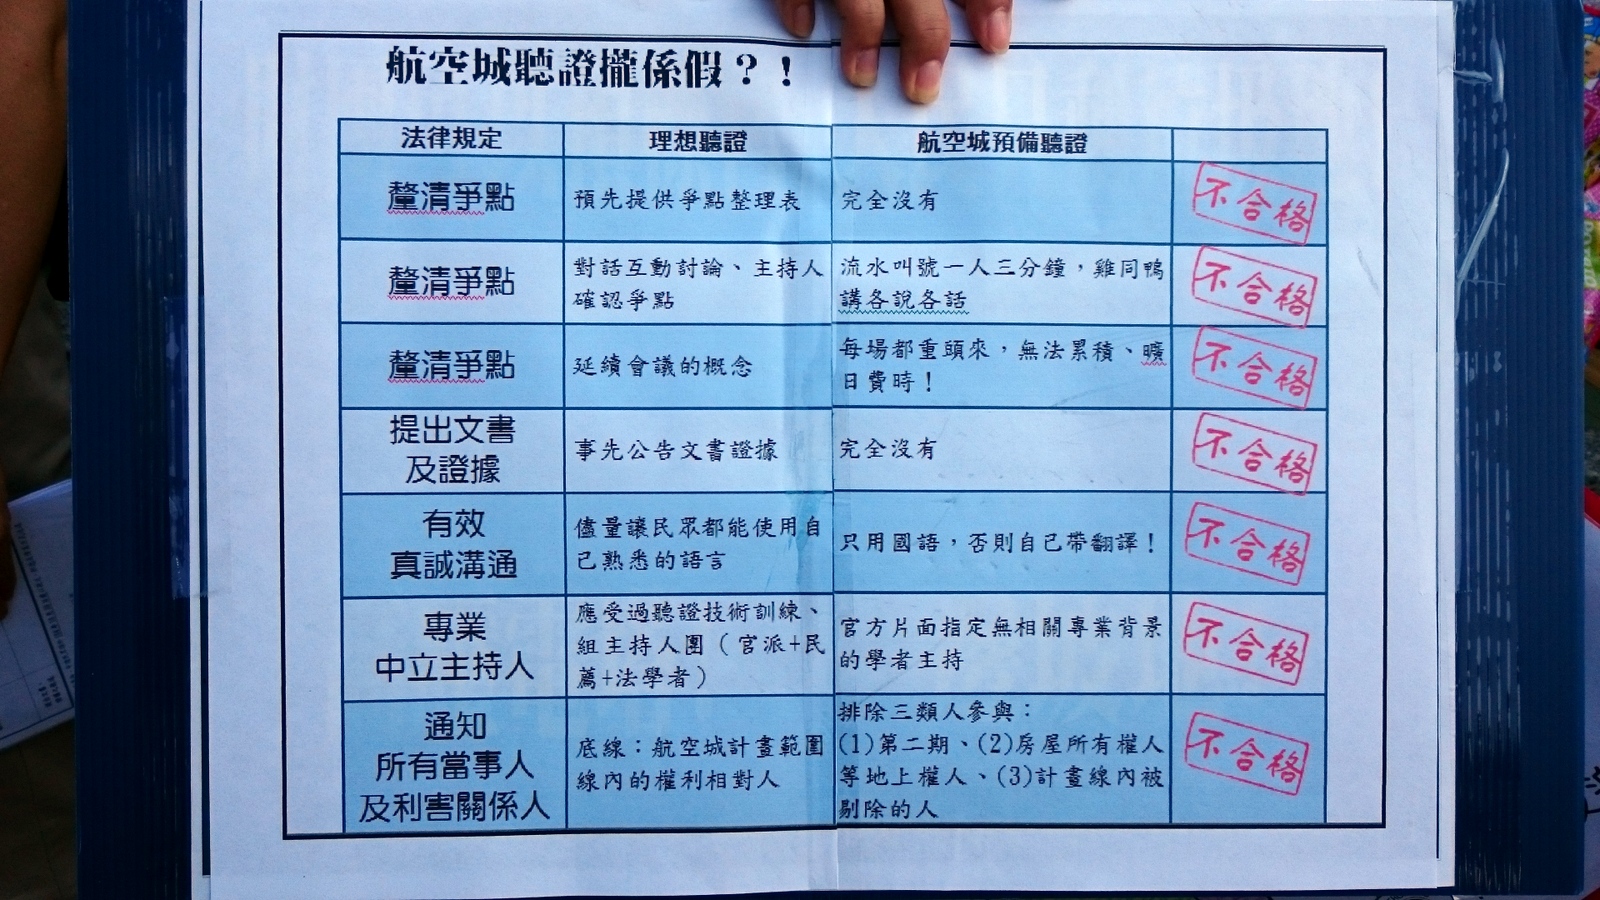 航空城聽證攏係假？！
法律規定 理想聽證 航空城預備聽證
釐清爭點 預先提供爭點整理表 完全沒有 不合格
釐清爭點 對話互動討論、主持人
確認爭點 流水叫號一人三分鐘，雞同鴨
講各說各話 不合格
釐清爭點 延續會議的概念 每場都重頭來，無法累積、曠
日費時！ 不合格
提出文書
及證據 事先公告文書證據 完全沒有 不合格
有效
真誠溝通 儘量讓民眾都能使用自
己熟悉的語言 只用國語，否則自己帶翻譯！ 不合格
專業
中立主持人 應受過聽證技術訓練、
組主持人團（官派+民
薦+法學者） 官方片面指定無相關專業背景
的學者主持 不合格
通知
所有當事人
及利害關係人 底線：航空城計畫範圍
線內的權利相對人 排除三類人參與：
(1)第二期、(2)房屋所有權人
等地上權人、(3)計畫線內被
剔除的人 不合格